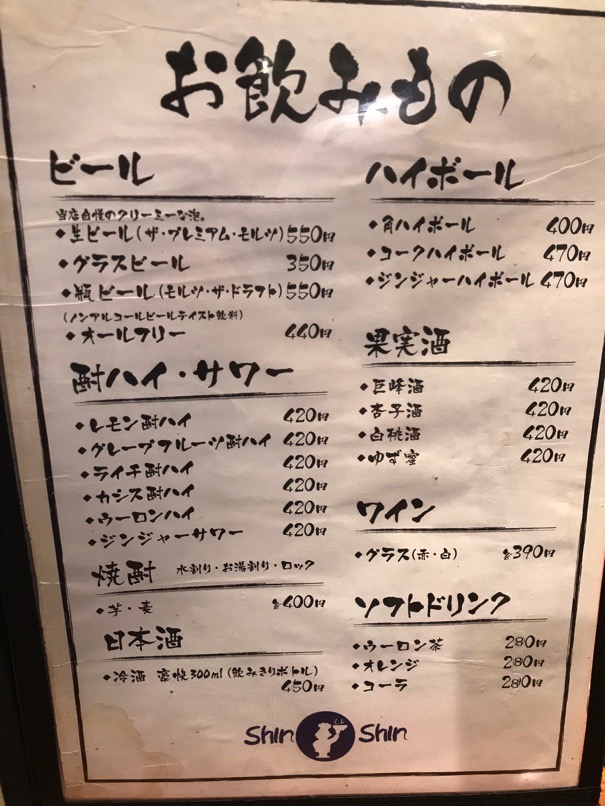 お飲みもの
ビール
当店自慢のクリーミーな泡。
◆生ビール(ザ・プレミアム・モルツ) 550円
◆グラスビール 350円
◆瓶ビール(モルツ・ザ・ドラフト) 550円
(ノンアルコールビールテイスト飲料)
◆オールフリー 440円
酎ハイ・サワー
◆レモン酎ハイ 420円
◆グレープフルーツ酎ハイ 420円
◆ライチ酎ハイ 420円
◆カシス酎ハイ 420円
◆ウーロンハイ 420円
◆ジンジャーサワー 420円
焼酎 水割り・お湯割り・ロック
◆芋・麦 各400円
日本酒
◆冷酒 豪快300ml(飲みきりボトル)
450円
ハイボール
◆角ハイボール 400円
◆コークハイボール 470円
◆ジンジャーハイボール 470円
果実酒
◆巨峰酒 420円
◆杏子酒 420円
◆白桃酒 420円
◆ゆず蜜 420円
ワイン
◆グラス(赤・白) 各390円
ソフトドリンク
◆ウーロン茶 280円
◆オレンジ 280円
◆コーラ 280円
Shin Shin